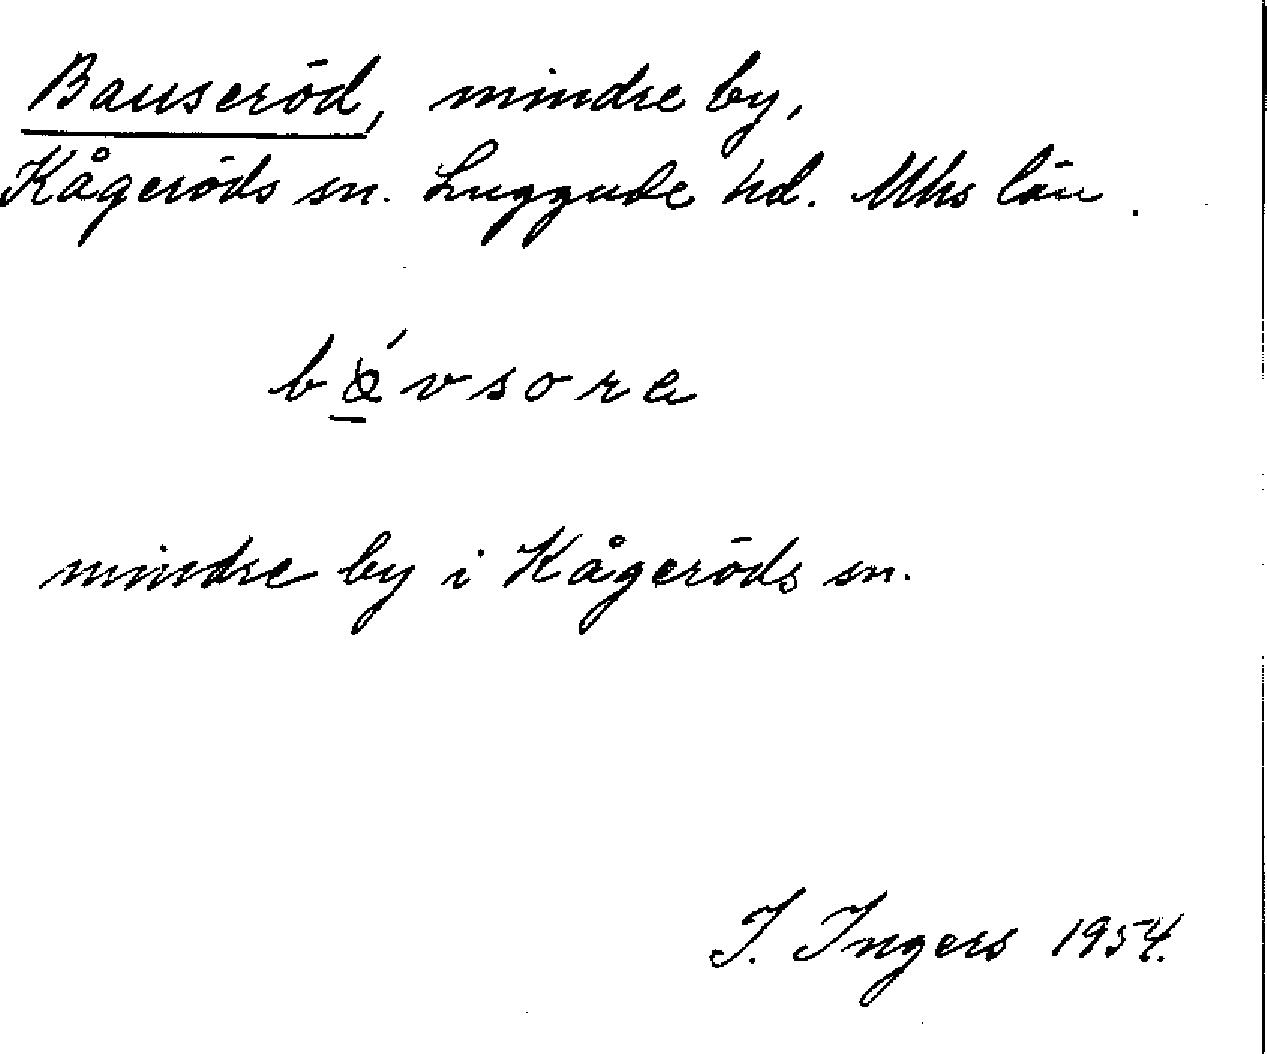 Bauseröd, mindre by,
Kågeröds sn. Luggude hd. Mhs län.
mindre by i Kågeröds sn.
I. Ingers 1954.